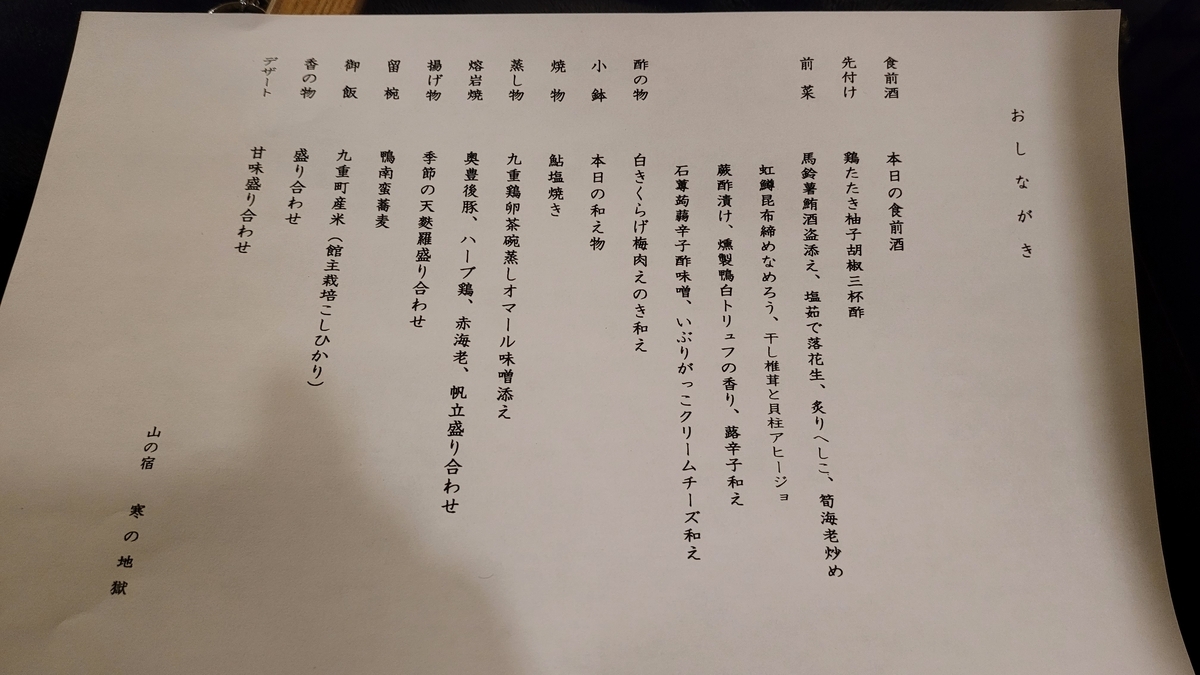 おしながき
食前酒 本日の食前酒
先付け 鶏たたき柚子胡椒三杯酢
前菜 馬鈴薯鮪酒盗添え、塩茹で落花生、炙りへしこ、筍海老炒め
虹鱒昆布締めなめろう、干し椎茸と貝柱アヒージョ
蕨酢漬け、燻製鴨白トリュフの香り、蕗辛子和え
石蓴蒟蒻辛子酢味噌、いぶりがっこクリームチーズ和え
酢の物 白きくらげ梅肉えのき和え
小鉢 本日の和え物
焼物 鮎塩焼き
蒸し物 九重鶏卵茶碗蒸しオマール味噌添え
熔岩焼 奥豊後豚、ハーブ鶏、赤海老、帆立盛り合わせ
揚げ物 季節の天麩羅盛り合わせ
留椀 鴨南蛮蕎麦
御飯 九重町産米（館主栽培こしひかり）
香の物 盛り合わせ
デザート 甘味盛り合わせ
山の宿 寒の地獄